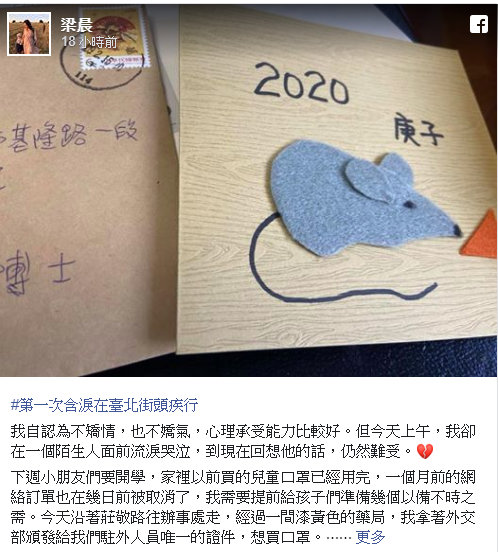 梁晨
18 小時前
114
2020
庚子
基隆路一段
博士
#第一次含淚在臺北街頭疾行
我自認為不矯情，也不嬌氣，心理承受能力比較好。但今天上午，我卻
在一個陌生人面前流淚哭泣，到現在回想他的話，仍然難受。💔
下週小朋友們要開學，家裡以前買的兒童口罩已經用完，一個月前的網
絡訂單也在幾日前被取消了，我需要提前給孩子們準備幾個以備不時之
需。今天沿著莊敬路往辦事處走，經過一間漆黃色的藥局，我拿著外交
部頒發給我們駐外人員唯一的證件，想買口罩。⋯⋯ 更多